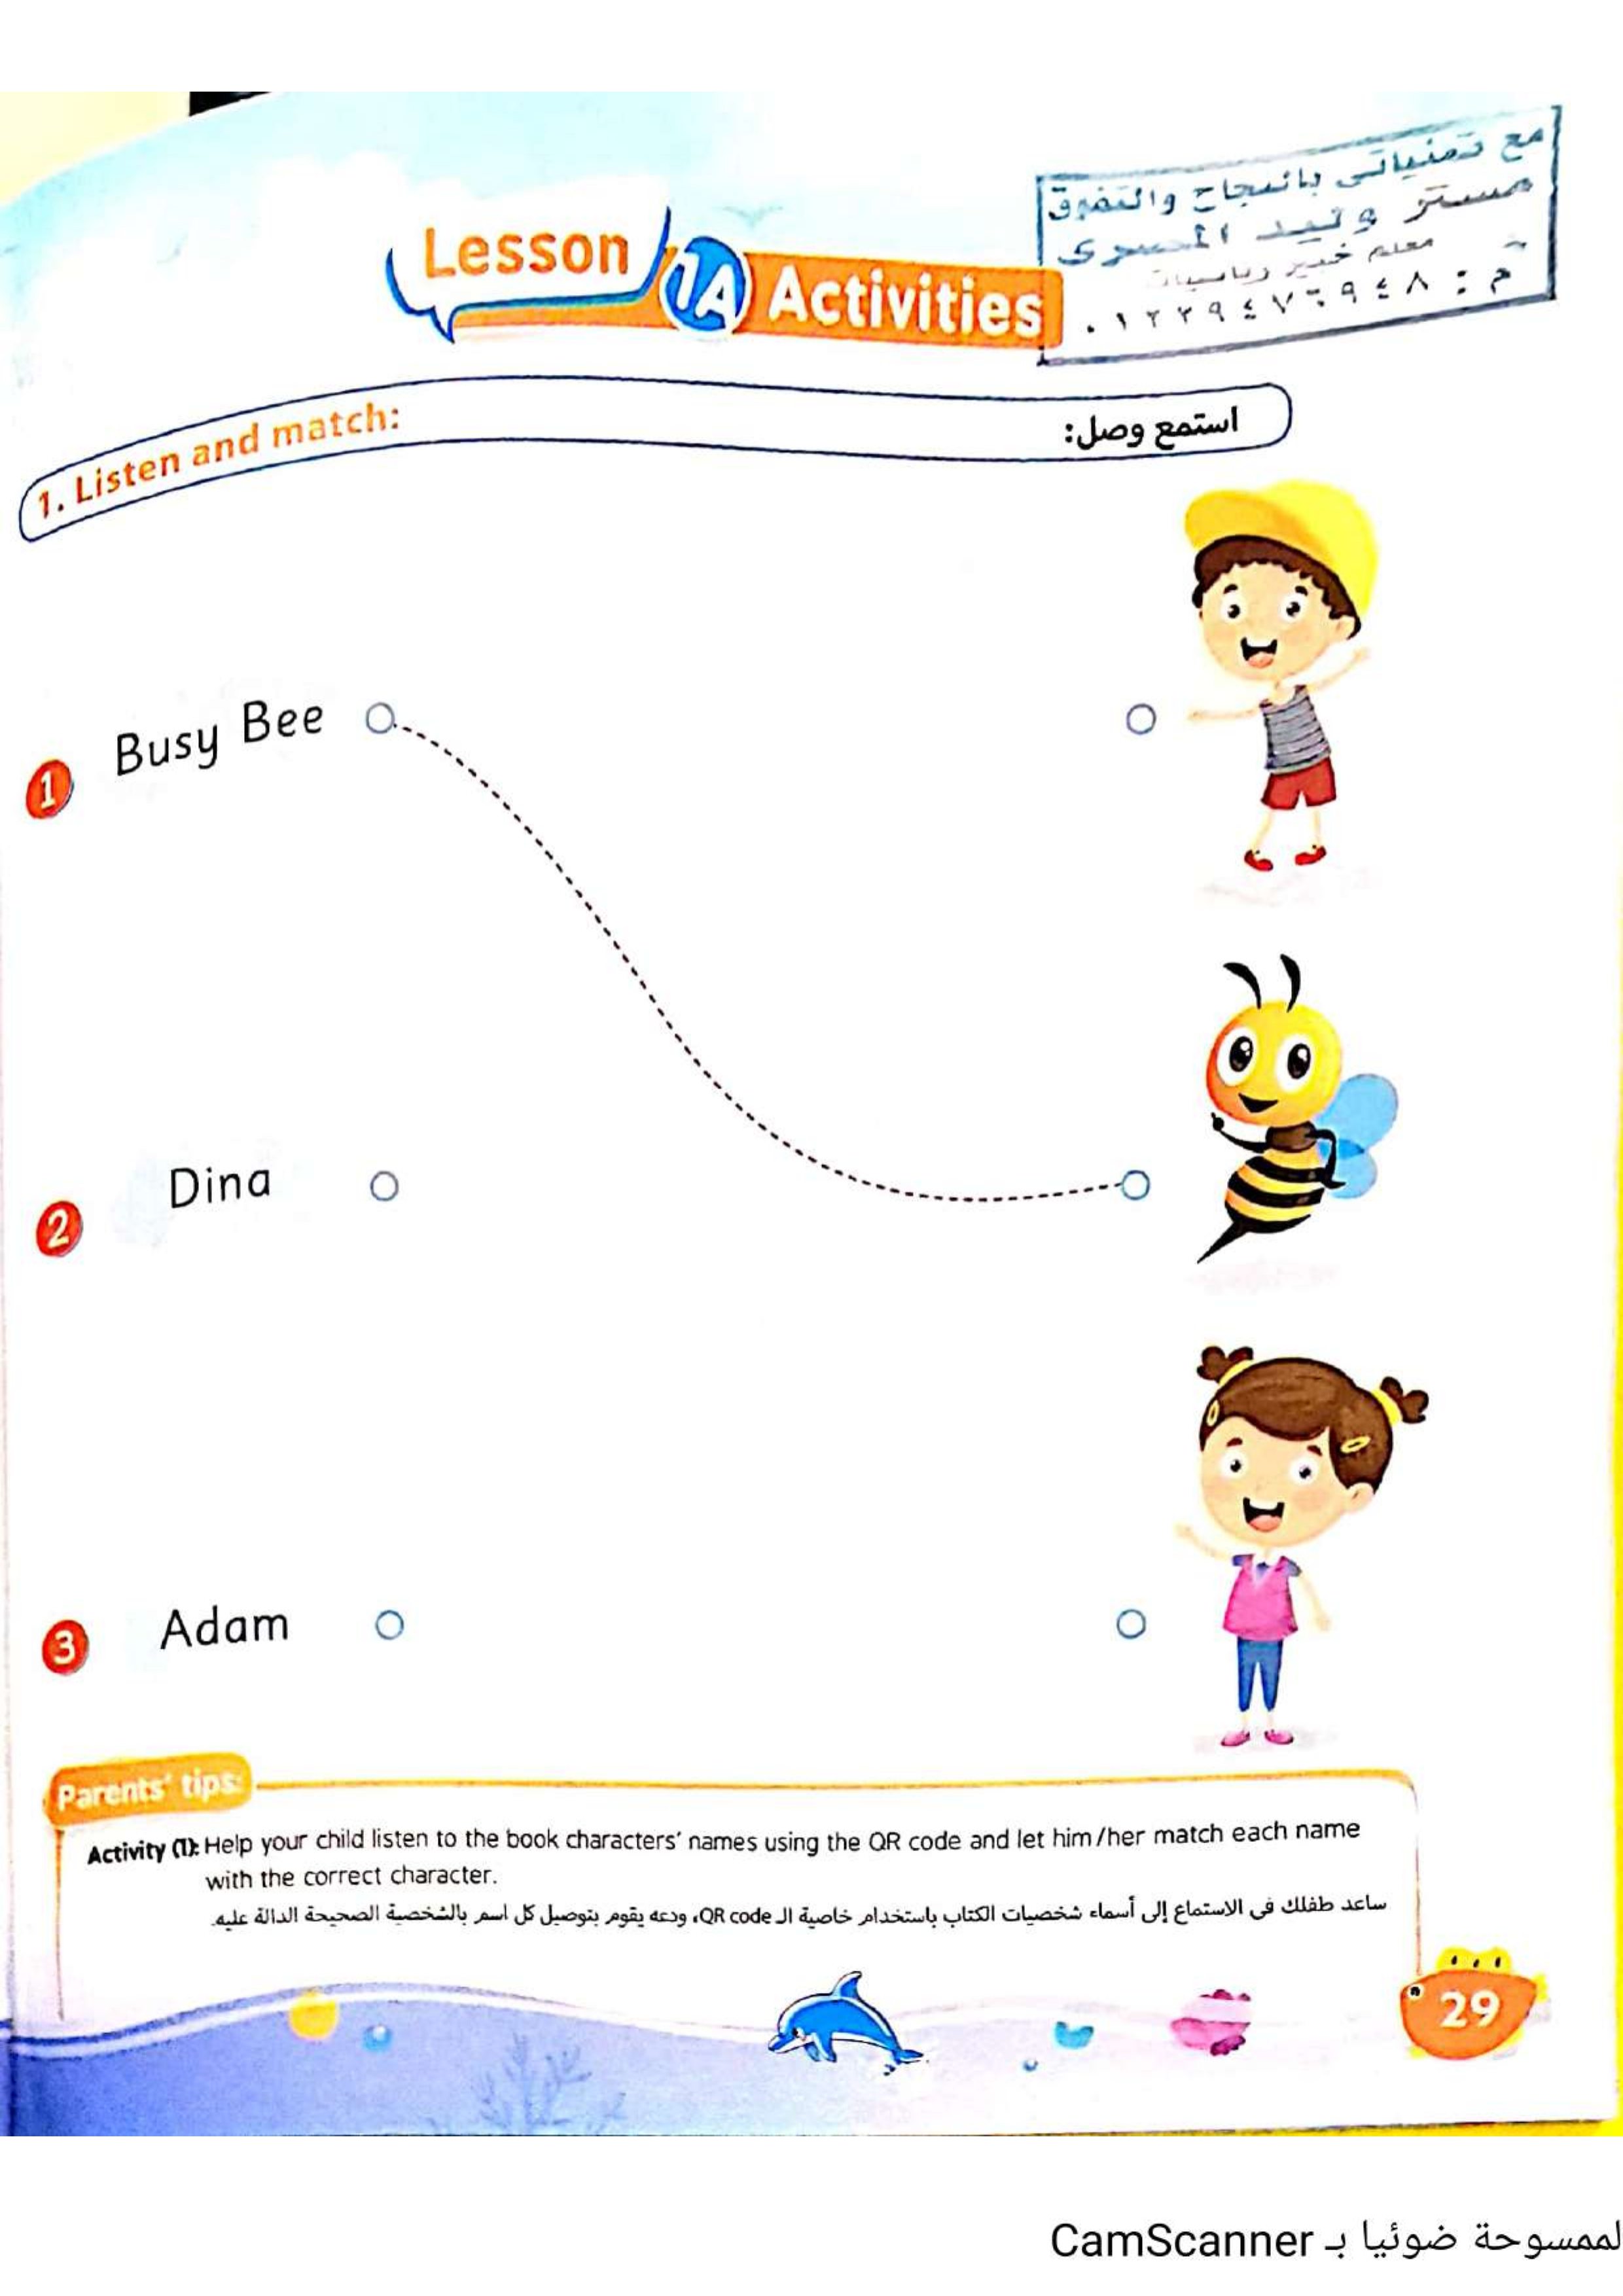 Lesson 1A Activities
مع تمنياتى بالنجاح والتفوق
مستر وليد المصرى
معلم خبير رياضيات
1. Listen and match:
استمع وصل:
1 Busy Bee
2 Dina
3 Adam
Parents' tips:
Activity (1): Help your child listen to the book characters' names using the QR code and let him/her match each name
with the correct character.
ساعد طفلك فى الاستماع إلى أسماء شخصيات الكتاب باستخدام خاصية الـ QR code، ودعه يقوم بتوصيل كل اسم بالشخصية الصحيحة الدالة عليه.
29
لممسوحة ضوئيا بـ CamScanner